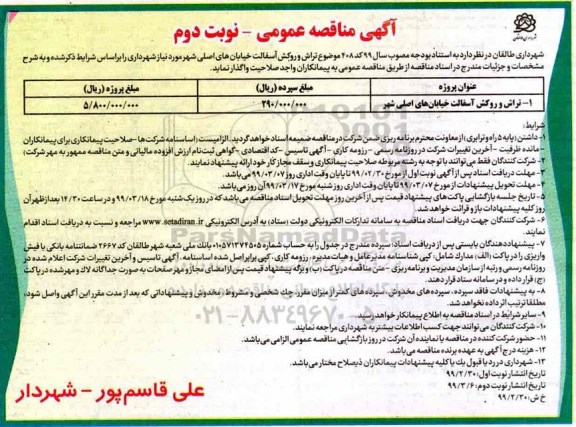 آگهی مناقصه عمومی - نوبت دوم
شهرداری طالقان در نظر دارد به استناد بودجه مصوب سال ۹۹ کد ۲۰۸ موضوع تراش و روکش آسفالت خیابان های اصلی شهر مورد نیاز شهرداری را بر اساس شرایط ذکر شده و به شرح
مشخصات و جزئیات مندرج در اسناد مناقصه از طریق مناقصه عمومی به پیمانکاران واجد صلاحیت واگذار نماید.
عنوان پروژه مبلغ سپرده (ریال) مبلغ پروژه (ریال)
۱- تراش و روکش آسفالت خیابان‌های اصلی شهر ۲۹۰/۰۰۰/۰۰۰ ۵/۸۰۰/۰۰۰/۰۰۰
شرایط:
۱- داشتن (پایه ۵ راه و ترابری) از معاونت محترم برنامه ریزی ضمن شرکت در مناقصه ضمیمه اسناد خواهد گردید. الزامیست (اساسنامه شرکت ها - صلاحیت پیمانکاری برای پیمانکاران
- مانده ظرفیت - آخرین تغییرات شرکت در روزنامه رسمی - رزومه کاری - آگهی تاسیس - کد اقتصادی - گواهی ثبت نام ارزش افزوده مالیاتی و متن مناقصه ممهور به مهر شرکت)
۲- شرکت کنندگان فقط می توانند با توجه به رشته مربوطه صلاحیت پیمانکاری و سقف مجاز کار خود ارائه پیشنهاد نمایند.
۳- مهلت دریافت اسناد پس از آگهی نوبت اول از مورخ ۹۹/۰۲/۳۰ تا پایان وقت اداری روز ۹۹/۰۳/۰۷ می باشد.
۴- مهلت تحویل پیشنهادات از مورخ ۹۹/۰۳/۰۷ تا پایان وقت اداری روز شنبه مورخ ۹۹/۰۳/۱۷ آن روز می باشد.
۵- تاریخ جلسه بازگشایی پاکت‌های پیشنهاد قیمت پس از آخرین روز مهلت تحویل اسناد مناقصه می‌باشد که در روز یک شنبه مورخ ۹۹/۰۳/۱۸ و در ساعت ۱۴/۳۰ بعد از ظهر آن
روز کلیه پیشنهادات باز و قرائت خواهد شد.
۶- شرکت کنندگان جهت دریافت اسناد مناقصه به سامانه تدارکات الکترونیکی دولت (ستاد) به آدرس الکترونیکی www.setadiran.ir مراجعه و نسبت به دریافت اسناد اقدام
نمایند.
۷- پیشنهاد دهندگان بایستی پس از دریافت اسناد؛ سپرده مندرج در جدول را به حساب شماره ۰۱۰۵۷۱۳۷۴۵۰۵ بانک ملی شعبه شهر طالقان کد ۲۶۶۷ ضمانتنامه بانکی یا فیش
واریزی را در پاکت (الف) مدارک شامل: کپی شناسنامه مدیرعامل و هیات مدیره، رزومه کاری، کپی برابر اصل شده اساسنامه، آگهی تاسیس و آخرین تغییرات شرکت اعلام شده در
روزنامه رسمی و رتبه از سازمان مدیریت و برنامه ریزی - متن مناقصه در پاکت (ب) و برگه پیشنهاد قیمت پس از امضای مجاز و مهر صفحات به صورت جداگانه لاک و مهر شده در پاکت
(ج) قرار داده و در سامانه ستاد قرار دهند.
۸- به پیشنهادات فاقد سپرده، سپرده های مخدوش، سپرده های کمتر از میزان مقرر، چک شخصی و مشروط، مخدوش و پیشنهاداتی که بعد از مدت مقرر این آگهی واصل شود؛
مطلقا ترتیب اثر داده نخواهد شد.
۹- سایر شرایط در اسناد مناقصه به اطلاع پیمانکار خواهد رسید.
۱۰- شرکت کنندگان می توانند جهت کسب اطلاعات بیشتر به شهرداری مراجعه نمایند.
۱۱- حضور شرکت کننده در مناقصه یا نماینده آن شرکت در روز بازگشایی مناقصه عمومی الزامی می باشد.
۱۲- هزینه درج آگهی به عهده برنده مناقصه می باشد.
۱۳- شهرداری در رد یا قبول یک یا کلیه پیشنهادات پیمانکاران ذیصلاح مختار می باشد.
تاریخ انتشار نوبت اول: ۹۹/۲/۳۰
تاریخ انتشار نوبت دوم: ۹۹/۳/۶
خ ش: ۹۹/۲/۳۰
علی قاسم پور - شهردار
ParsNamadData
۰۲۱-۸۸۳۴۹۶۷۰-۵